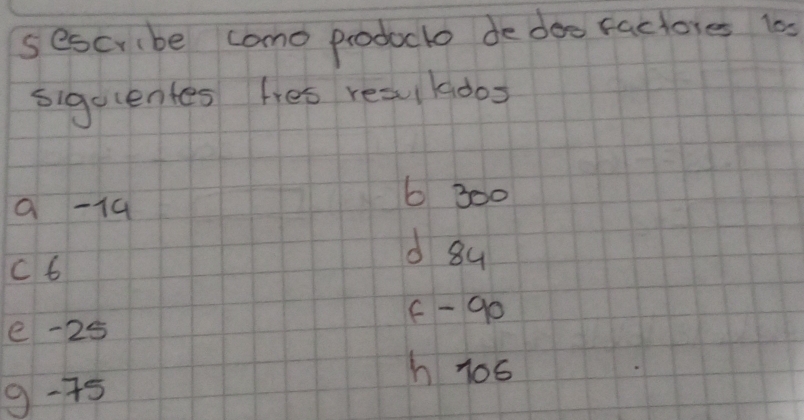 s escribe como producto de dos factores los
siguientes tres resultados
a -14
b 300
c 6
d 84
e -25
f -90
g -75
h 106